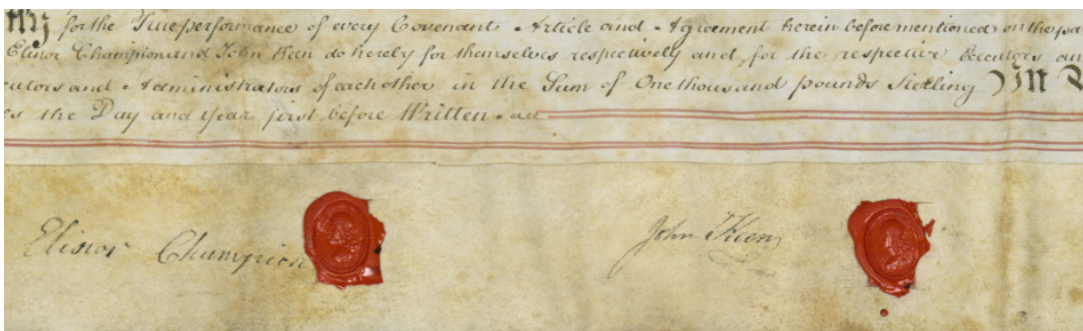 for the True performance of every Covenant Article and Agreement herein before mentioned on the pa
Elinor Champion and John Keen do hereby for themselves respectively and for the respective Executors an
cutors and Administrators of each other in the Sum of One thousand pounds Sterling In
es the Day and Year first before Written.
Elinor Champion
John Keen